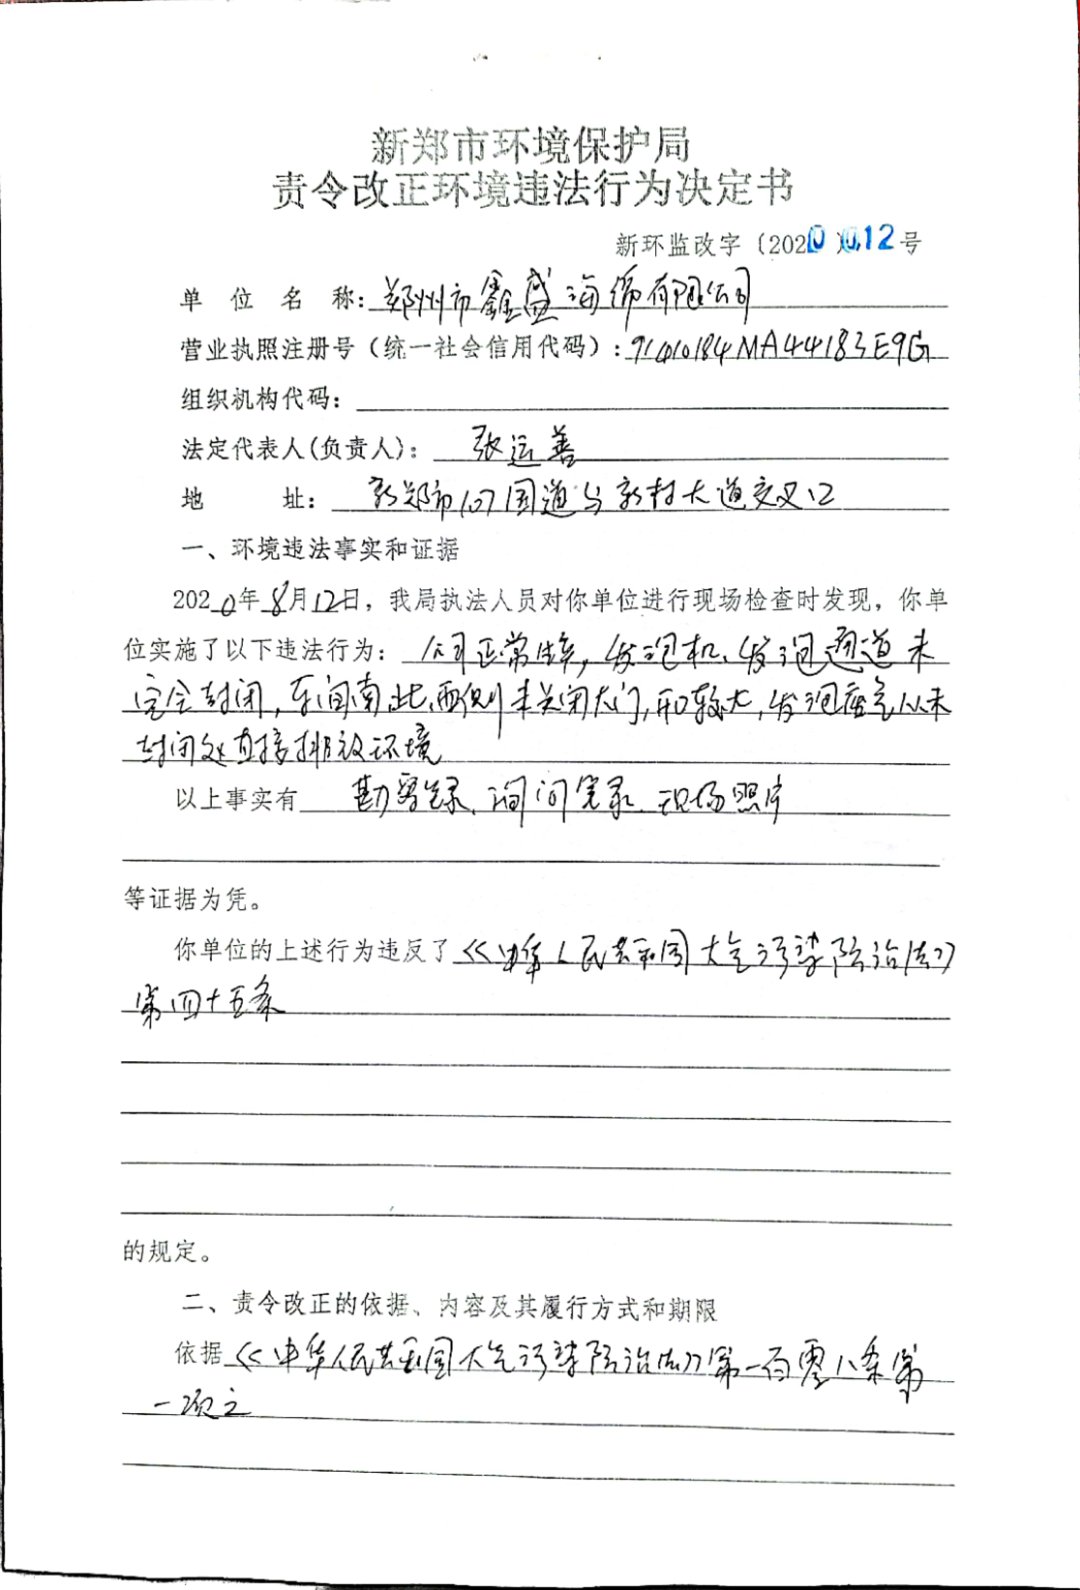 新郑市环境保护局
责令改正环境违法行为决定书
新环监改字〔2020〕012号
单位名称：郑州市鑫盛海绵有限公司
营业执照注册号（统一社会信用代码）：91410184MA44183E9G
组织机构代码：
法定代表人（负责人）：张运善
地址：新郑市107国道与新村大道交叉口
一、环境违法事实和证据
2020年8月12日，我局执法人员对你单位进行现场检查时发现，你单
位实施了以下违法行为：公司正常生产，发泡机、发泡通道未
完全封闭，车间南北两侧未关闭大门，开口较大，发泡废气从未
封闭处直接排放环境
以上事实有 勘察笔录、询问笔录、现场照片
等证据为凭。
你单位的上述行为违反了《中华人民共和国大气污染防治法》
第四十五条
的规定。
二、责令改正的依据、内容及其履行方式和期限
依据《中华人民共和国大气污染防治法》第一百零八条第
一项之